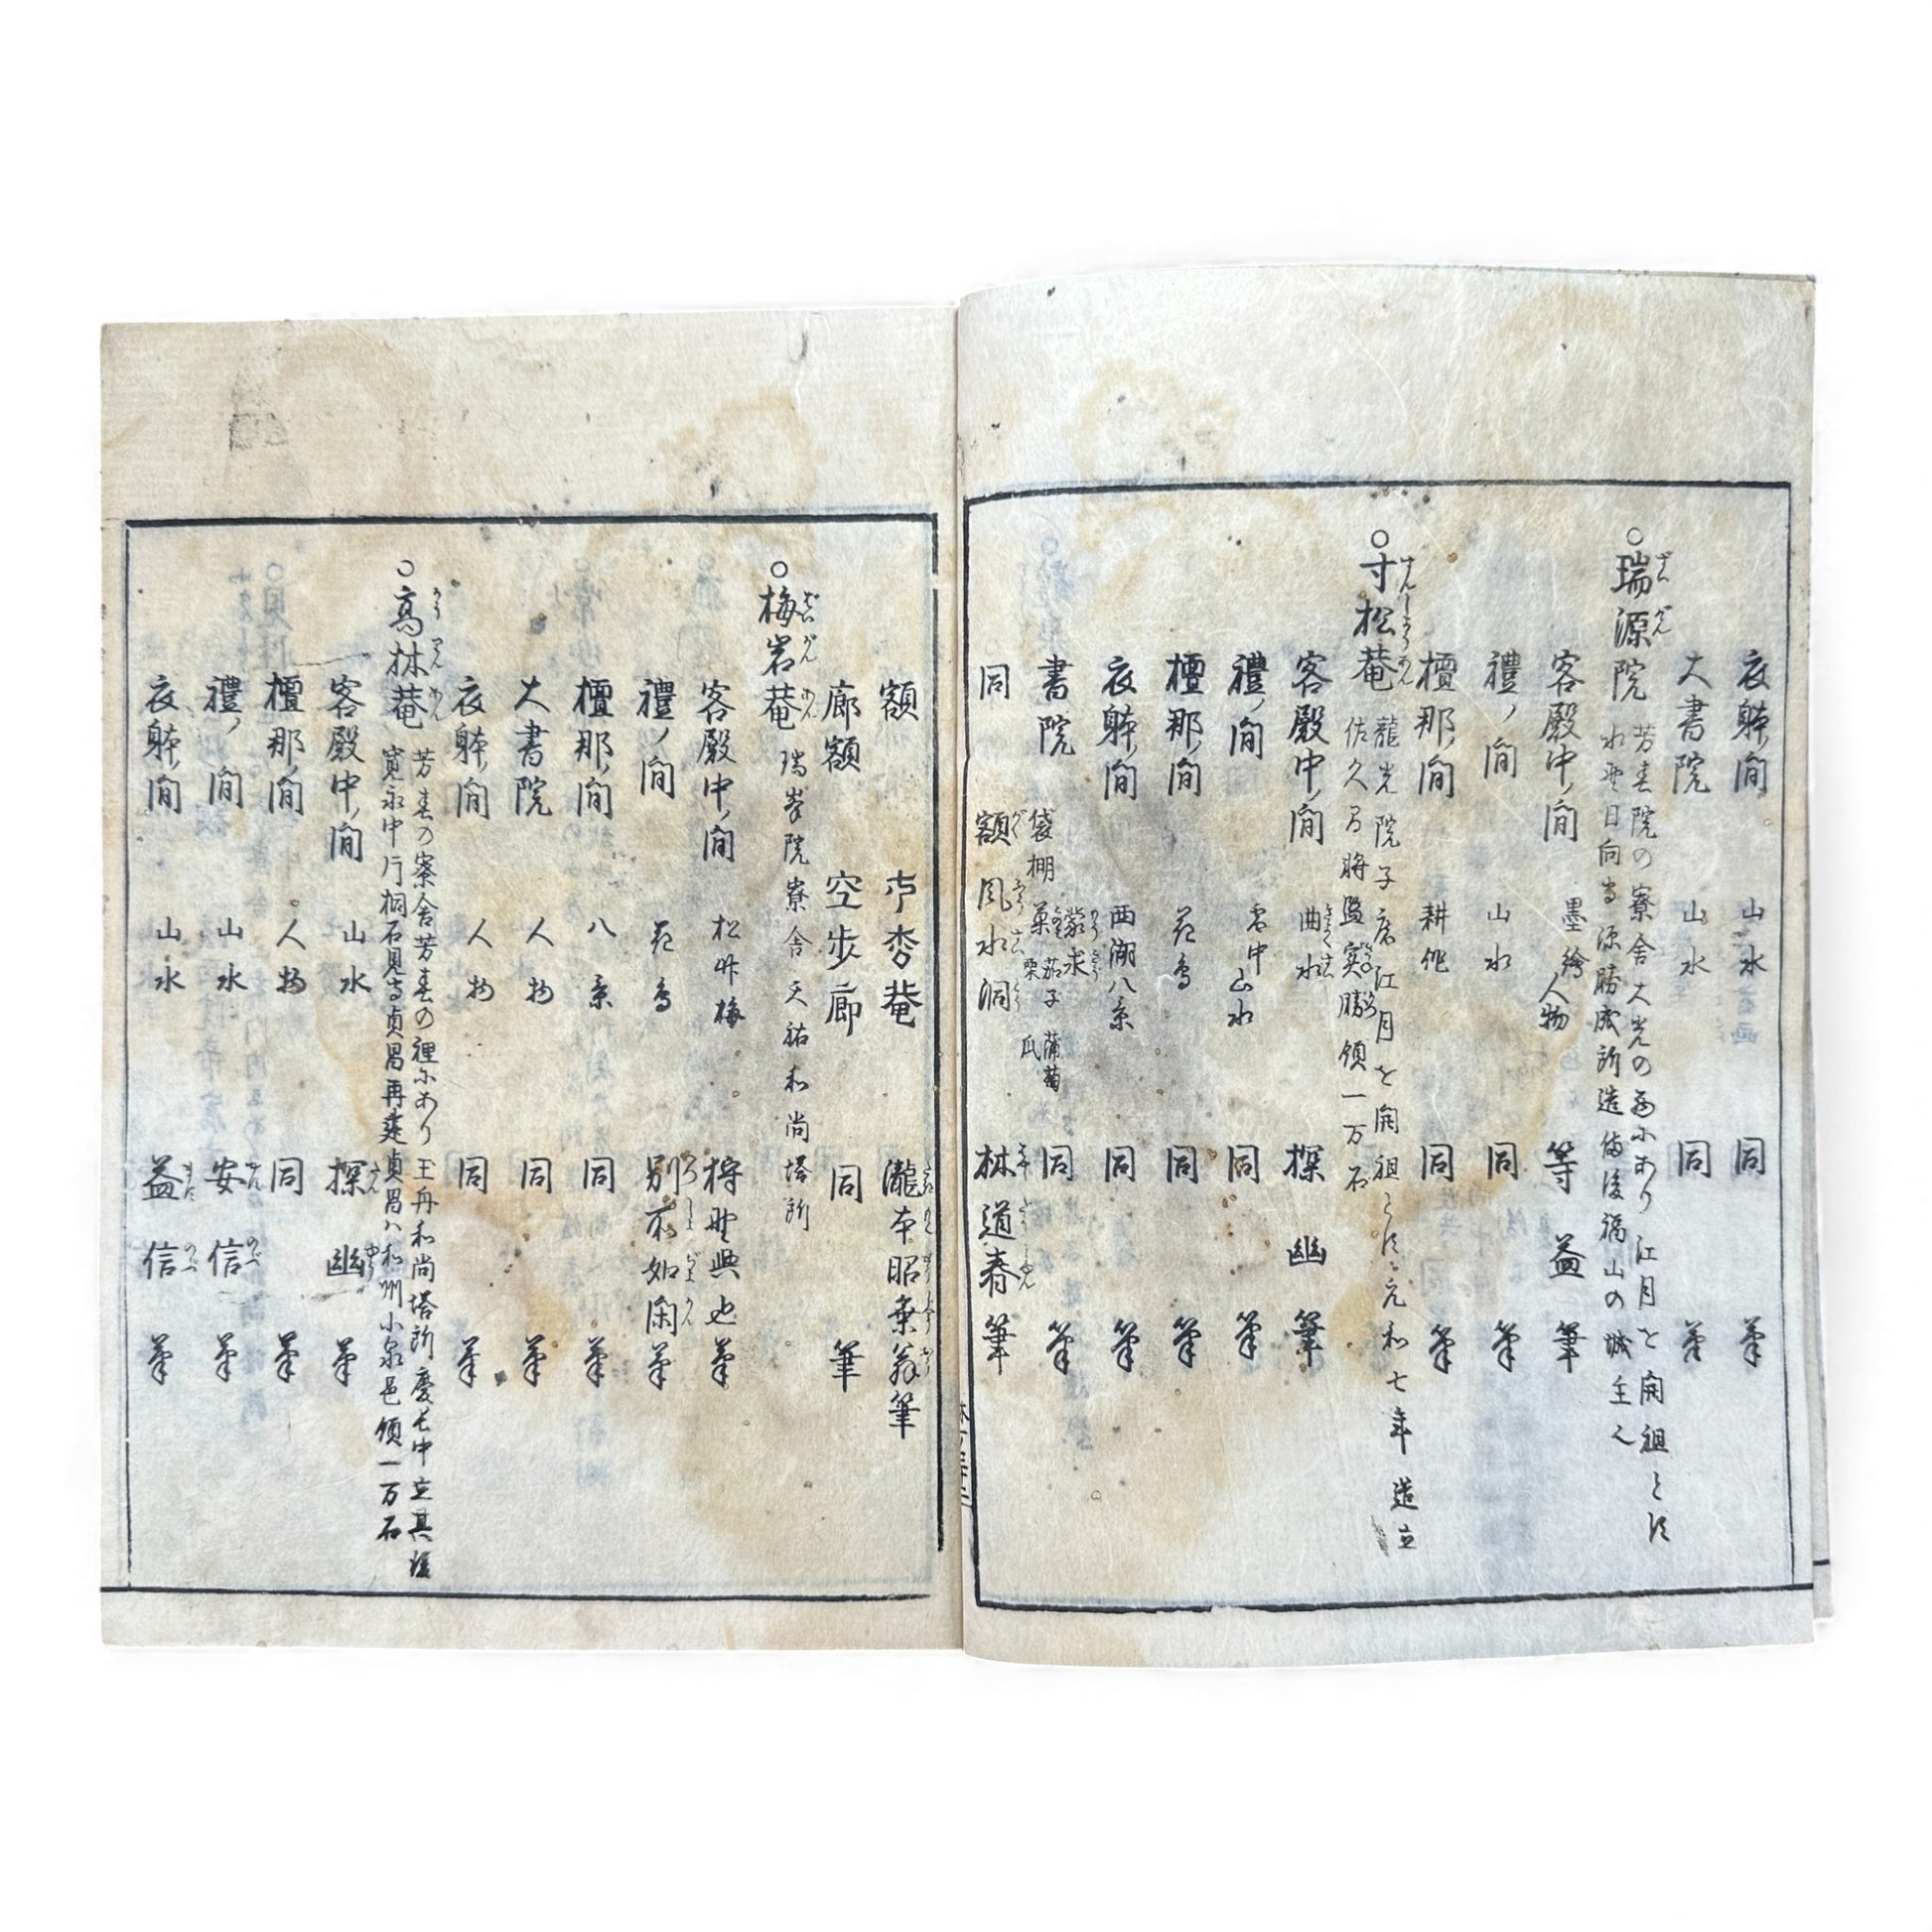 衣躰ノ間 山水 同 筆
大書院 山水 同 筆
○瑞源院 芳春院の寮舎大光の西にあり江月を開祖とす
水野日向守源勝成所造備後福山の城主也
客殿中ノ間 墨繪人物 等益筆
禮ノ間 山水 同 筆
檀那ノ間 耕作 同 筆
○寸松菴 龍光院子房江月を開祖とす元和七年造立
佐久間将監実勝領一万石
客殿中ノ間 曲水 探幽筆
禮ノ間 雪中山水 同 筆
檀那ノ間 花鳥 同 筆
衣躰ノ間 西湖八景 同 筆
書院 袋棚 蒙求 菓 茄子 栗 蒲萄 瓜 同 筆
同 額 風水洞 林道春筆
額 菴 瀧本昭乗翁筆
廊額 空歩廊 同 筆
○梅岩菴 瑞峯院寮舎天祐和尚塔所
客殿中ノ間 松竹梅 狩野興也筆
禮ノ間 花鳥 別所如閑筆
檀那ノ間 八景 同 筆
大書院 人物 同 筆
衣躰ノ間 人物 同 筆
○高林菴 芳春の寮舎芳春の裡にあり玉舟和尚塔所慶長中立其後
寛永中片桐石見守貞昌再建貞昌ハ和州小泉邑領一万石
客殿中ノ間 山水 探幽筆
檀那ノ間 人物 同 筆
禮ノ間 山水 安信筆
衣躰ノ間 山水 益信筆